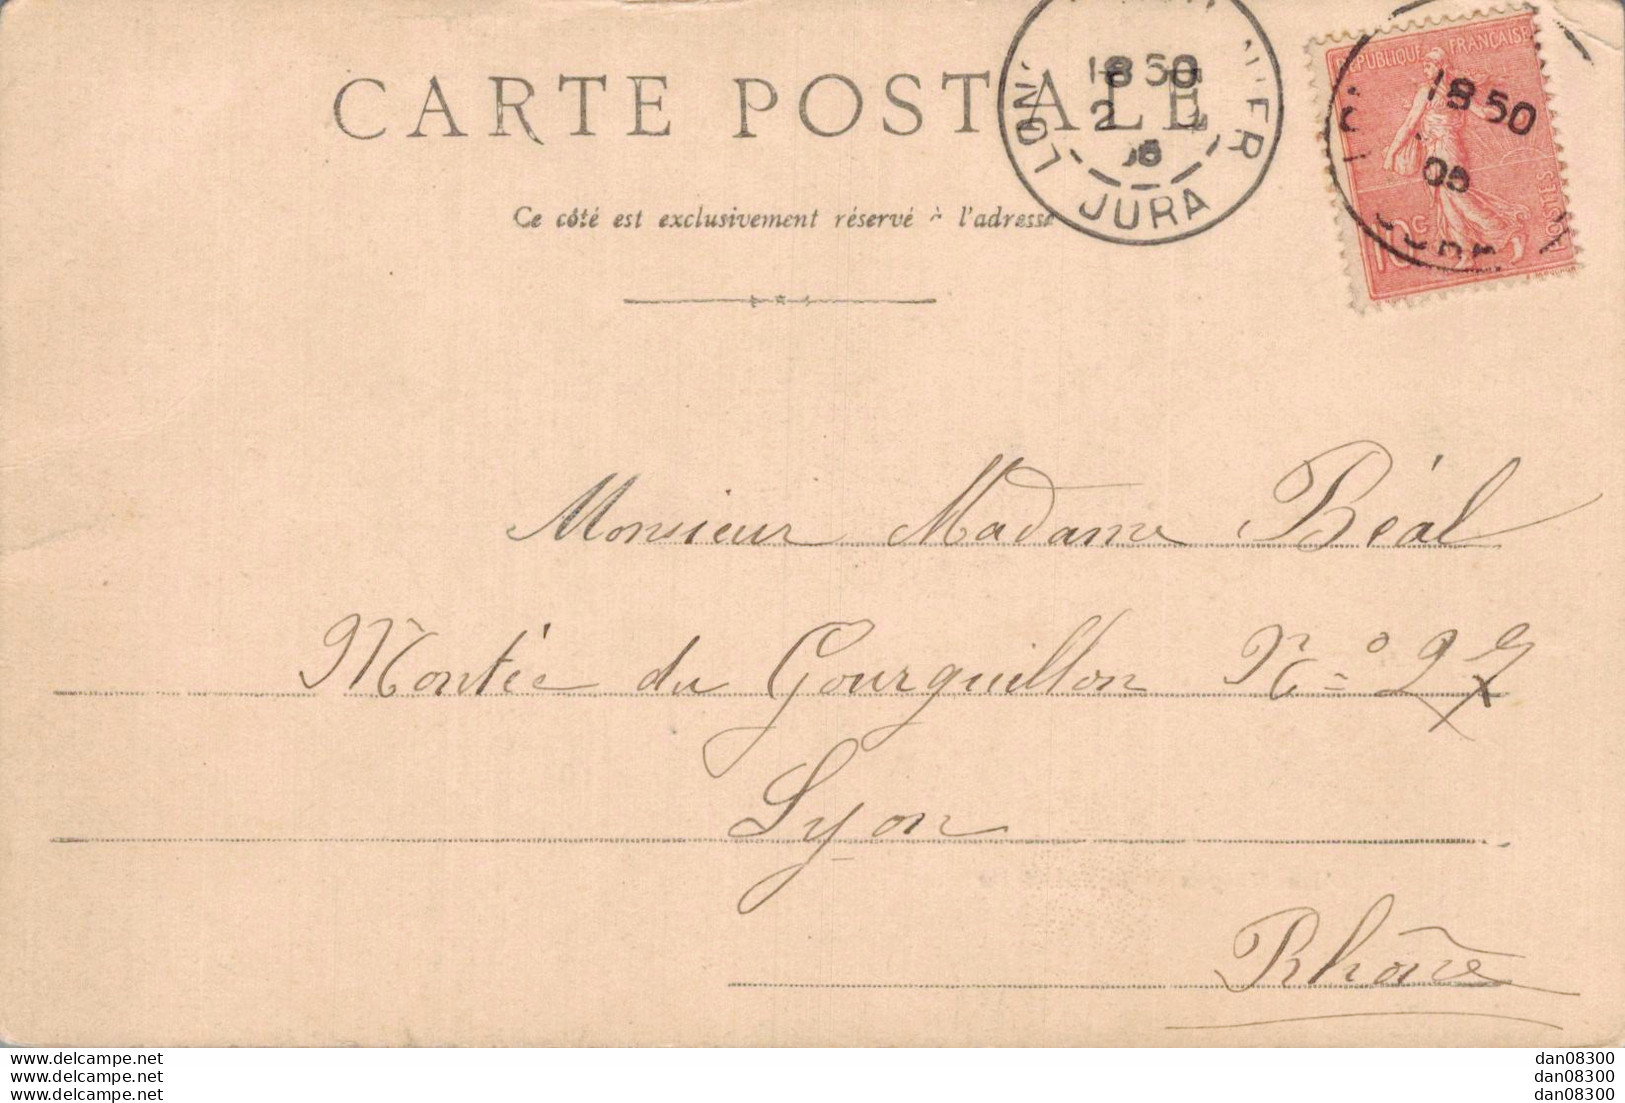 CARTE POSTALE
18 50
2
JURA
RÉPUBLIQUE FRANÇAISE
18 50
05
10 c
POSTES
Ce côté est exclusivement réservé à l'adresse
Monsieur Madame Béal
Montée du Gourguillon N° 27
Lyon
Rhône
www.delcampe.net
www.delcampe.net
www.delcampe.net
dan08300
dan08300
dan08300